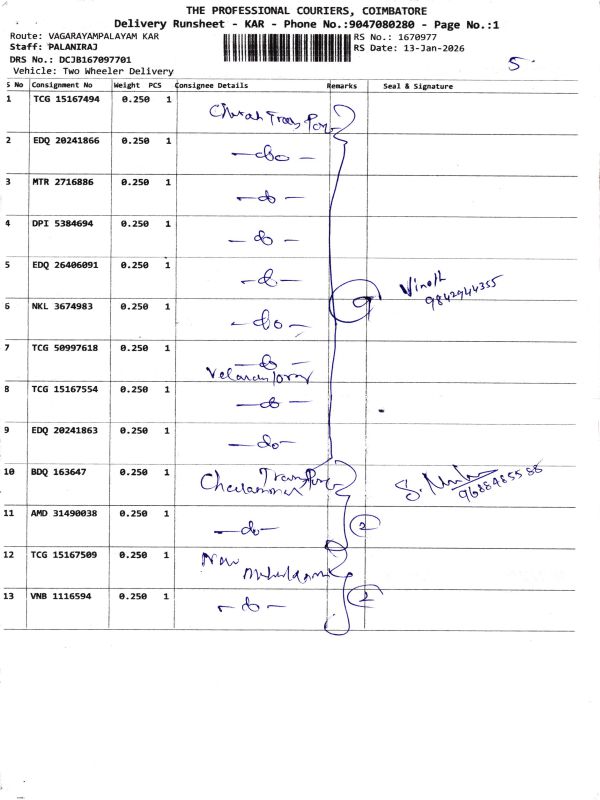 THE PROFESSIONAL COURIERS, COIMBATORE
Delivery Runsheet - KAR - Phone No.:9047080280 - Page No.:1
Route: VAGARAYAMPALAYAM KAR RS No.: 1670977
Staff: PALANIRAJ RS Date: 13-Jan-2026
DRS No.: DCJB167097701
Vehicle: Two Wheeler Delivery 5
S No Consignment No Weight PCS Consignee Details Remarks Seal & Signature
1 TCG 15167494 0.250 1
2 EDQ 20241866 0.250 1 -do-
3 MTR 2716886 0.250 1 -do-
4 DPI 5384694 0.250 1 -do-
5 EDQ 26406091 0.250 1 -do-
9 Vinoth
9842944355
6 NKL 3674983 0.250 1 -do-
7 TCG 50997618 0.250 1 -do-
8 TCG 15167554 0.250 1 -do-
9 EDQ 20241863 0.250 1 -do-
10 BDQ 163647 0.250 1
9688485588
11 AMD 31490038 0.250 1 -do- 2
12 TCG 15167509 0.250 1 New
13 VNB 1116594 0.250 1 -do- 2